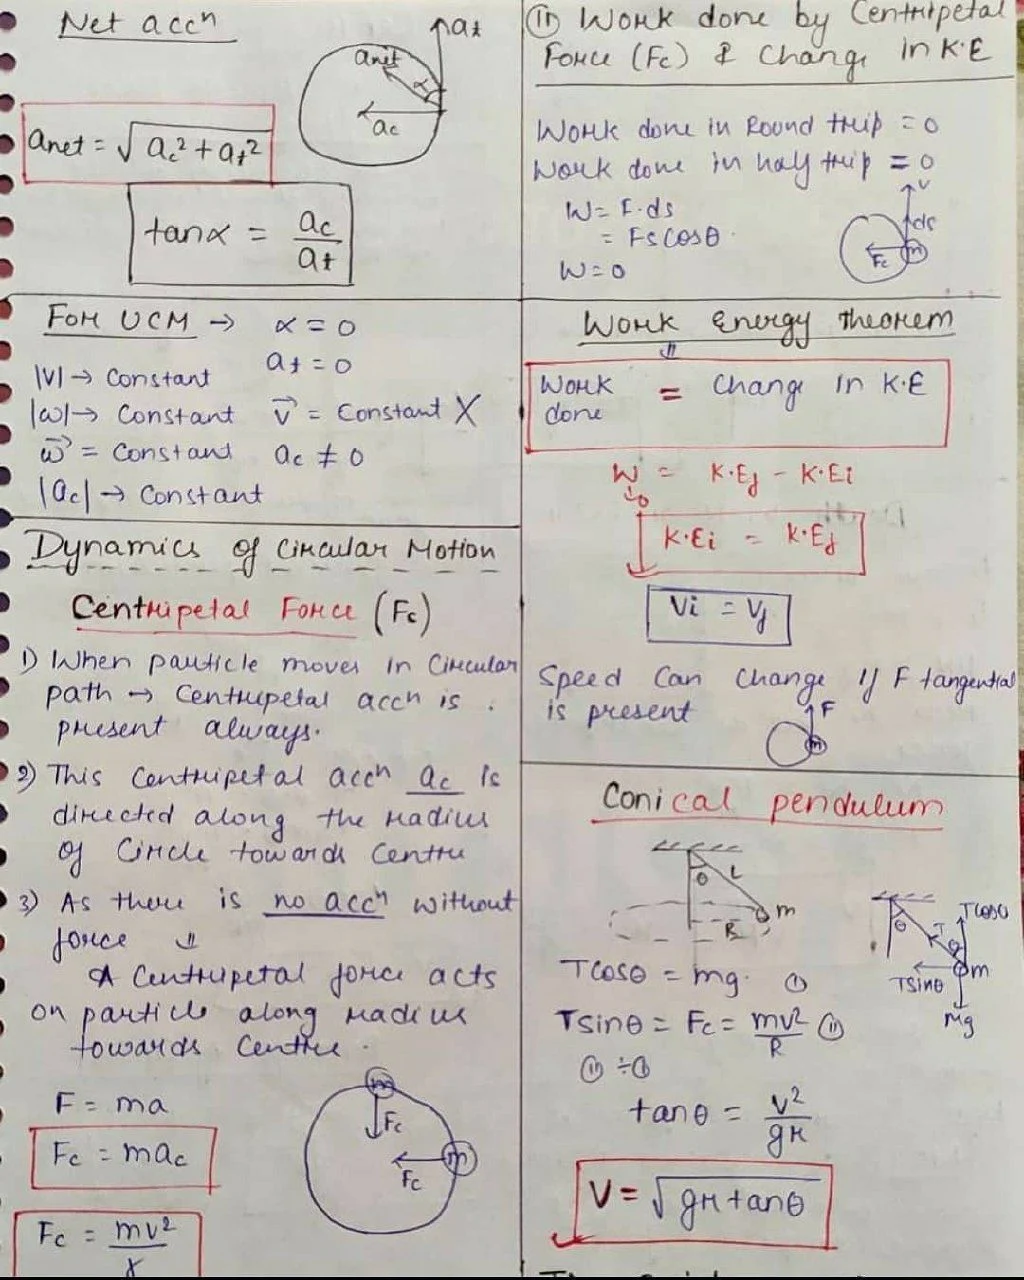 Net accⁿ
at
anet
α
ac
anet = √ac² + at²
tanα = ac/at
For UCM → α = 0
at = 0
|v| → Constant
|ω| → Constant v⃗ = Constant X
ω⃗ = Constant ac ≠ 0
|ac| → Constant
Dynamics of Circular Motion
Centripetal Force (Fc)
1) When particle moves in Circular
path → Centripetal accⁿ is
present always.
2) This Centripetal accⁿ ac is
directed along the radius
of Circle towards Centre
3) As there is no accⁿ without
force ⇓
A Centripetal force acts
on particle along radius
towards Centre.
F = ma
Fc = mac
Fc = mv²/r
m
Fc
m
Fc
(ii) Work done by Centripetal
Force (Fc) & Change in K.E
Work done in Round trip = 0
Work done in half trip = 0
W = F.ds
= FsCosθ
W = 0
v
ds
Fc
m
Work Energy Theorem
⇓
Work done = Change in K.E
W = K.Ef - K.Ei
↓0
K.Ei = K.Ef
Vi = Vf
Speed Can Change if F tangential
is present
F
m
Conical pendulum
θ
L
m
R
θ
T
θ
Tcosθ
m
Tsinθ
Mg
Tcosθ = mg. (i)
Tsinθ = Fc = mv²/R (ii)
(ii) ÷ (i)
tanθ = v²/gr
V = √gr tanθ